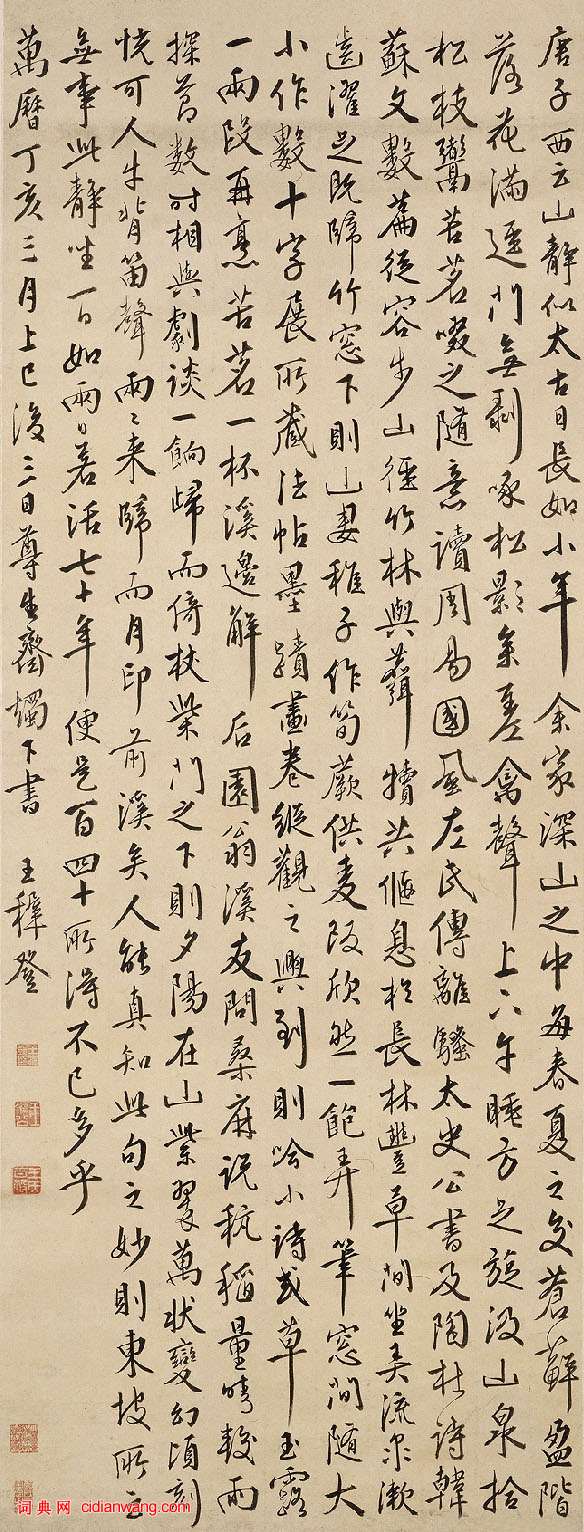 唐子西云山靜似太古日長如小年余家深山之中每春夏之交蒼蘚盈階
落花滿逕門無剝啄松影參差禽聲上下午睡方足旋汲山泉拾
松枝鬻苦茗啜之隨意讀周易國風左氏傳離騷太史公書及陶杜詩韓
蘇文數篇從容步山徑竹林與麛犢共偃息於長林豐草間坐弄流泉漱
齒濯足既歸竹窓下則山妻稚子作筍蕨供麦飯欣然一飽弄筆窓間隨大
小作數十字展所藏法帖墨蹟畫卷縱觀之興到則唫小詩或草玉露
一兩段再烹苦茗一杯溪邊解后園翁溪友問桑麻說秔稻量晴較雨
探節數時相與劇談一餉歸而倚杖柴門之下則夕陽在山紫翠萬狀變幻頃刻
恍可人牛背笛聲兩〻來歸而月印前溪矣人能真知此句之妙則東坡所云
無事此靜坐一日如兩日若活七十年便是百四十所得不已多乎
萬曆丁亥三月上巳後三日尊生齋燭下書 王穉登
词典网 cidianwang.com